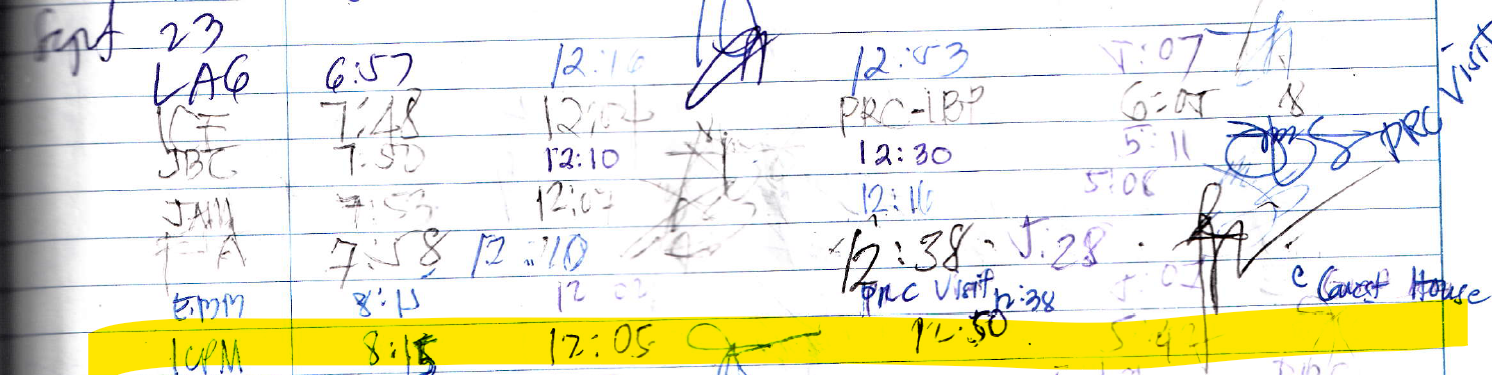 Sept 23
LAG 6:57 12:16 12:53 5:07
Visit
7:48 12:04 PRC-LBP 6:05
JBC 7:50 12:10 12:30 5:11 PRC
JAM 7:53 12:07 12:16 5:08
7:58 12:10 12:38 5:28
EMM 8:15 12:02 PRC Visit 12:38 Guest House
KPM 8:15 12:05 12:50 5:42